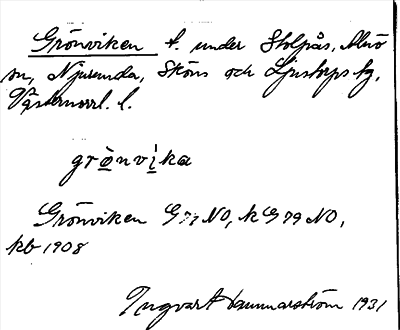 Grönviken t. under Stolpås, Alnö
sn, Njurunda, Sköns och Ljustorps tg,
Västernorrl. l.
grö̲nvi̲ka
Grönviken G 79 NO, k G 79 NO,
kb 1908
Ingvart Hammarström 1931